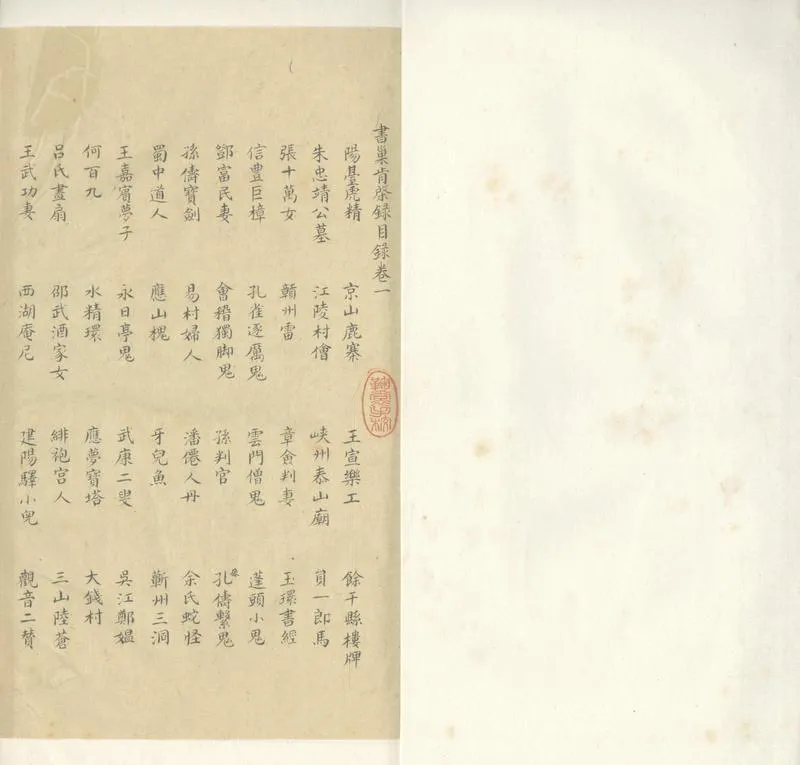 書巢肯綮録目録卷二
陽臺虎精 京山鹿寨 王宣樂工 餘干縣樓牌
朱忠靖公墓 江陵村僧 峽州泰山廟 貟一郎馬
張十萬女 贑州雷 章僉判妻 玉環書經
信豐巨樟 孔雀逐厲鬼 雲門僧鬼 蓬頭小鬼
鄧富民妻 會稽獨脚鬼 孫判官 孔儔繫鬼
孫儔寶劍 易村婦人 潘僊人丹 余氏蛇怪
蜀中道人 應山槐 牙兒魚 蘄州三洞
王嘉賓夢子 永日亭鬼 武康二叟 吳江鄭媼
何百九 水精環 應夢寶塔 大錢村
呂氏畫扇 邵武酒家女 緋袍宮人 三山陸蒼
王武功妻 西湖庵尼 建陽驛小兒 觀音二贊